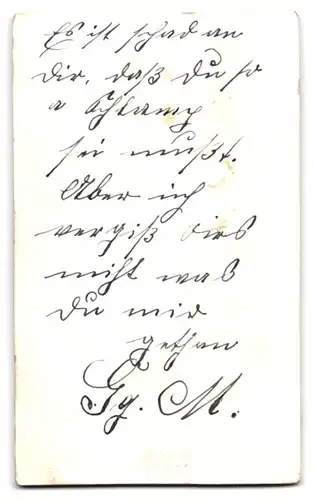 Es ist schad an
Dir, daß Du so
a Schlamp
sei mußt.
Aber ich
vergiß dirs
nicht was
Du mir
gethan
Gg. M.